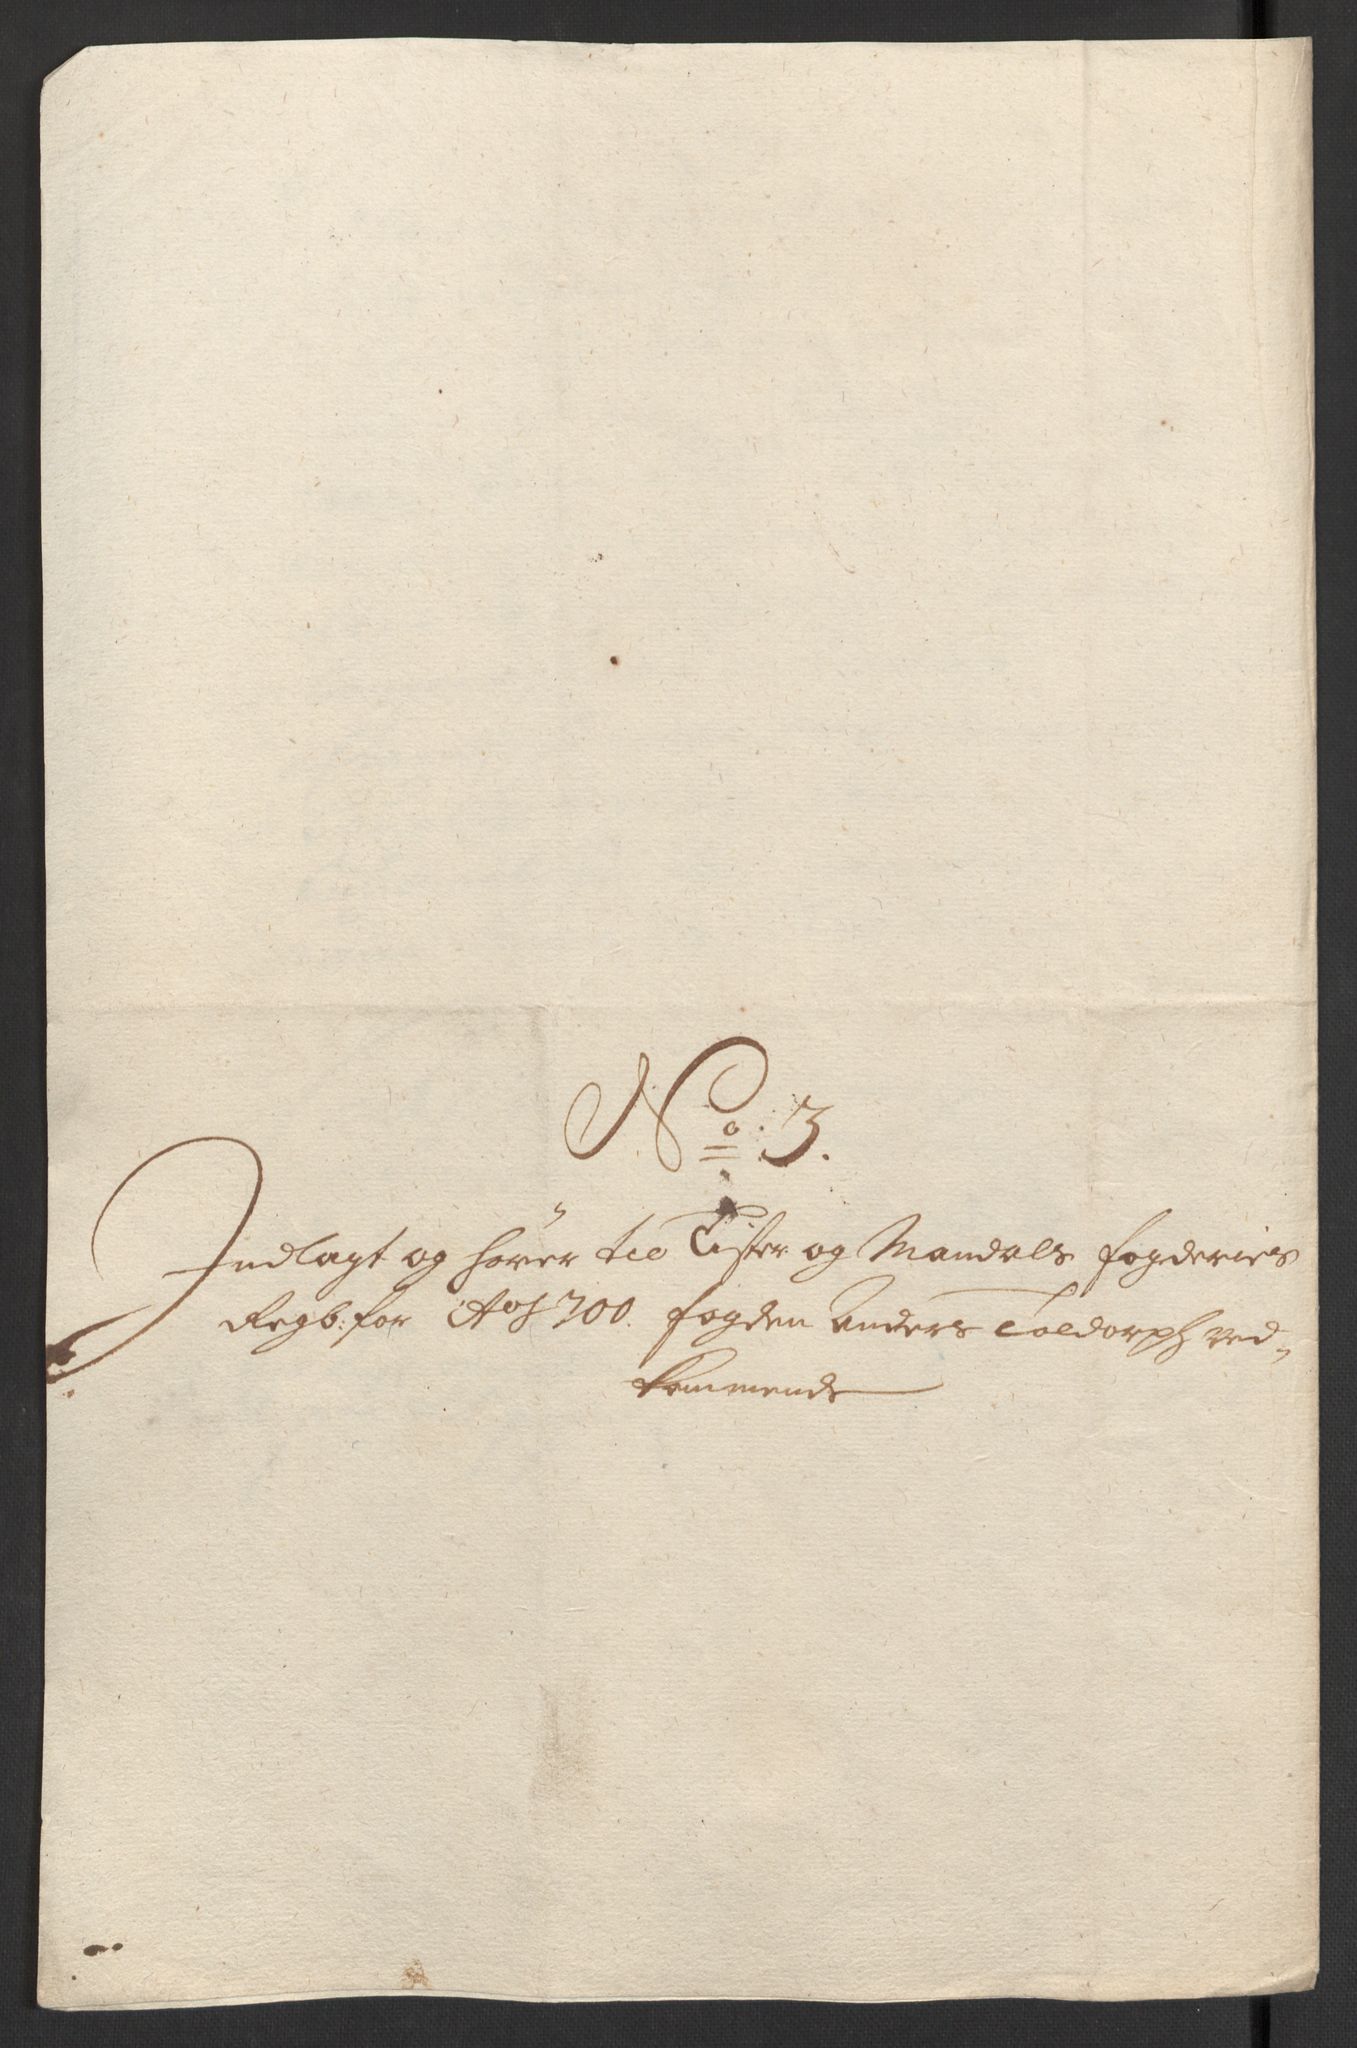 No: 3.
Indlagt og hører till Lister og Mandals fogderies
Regb: for Ao 1700. fogden Anders Toldorph ved-
kommende